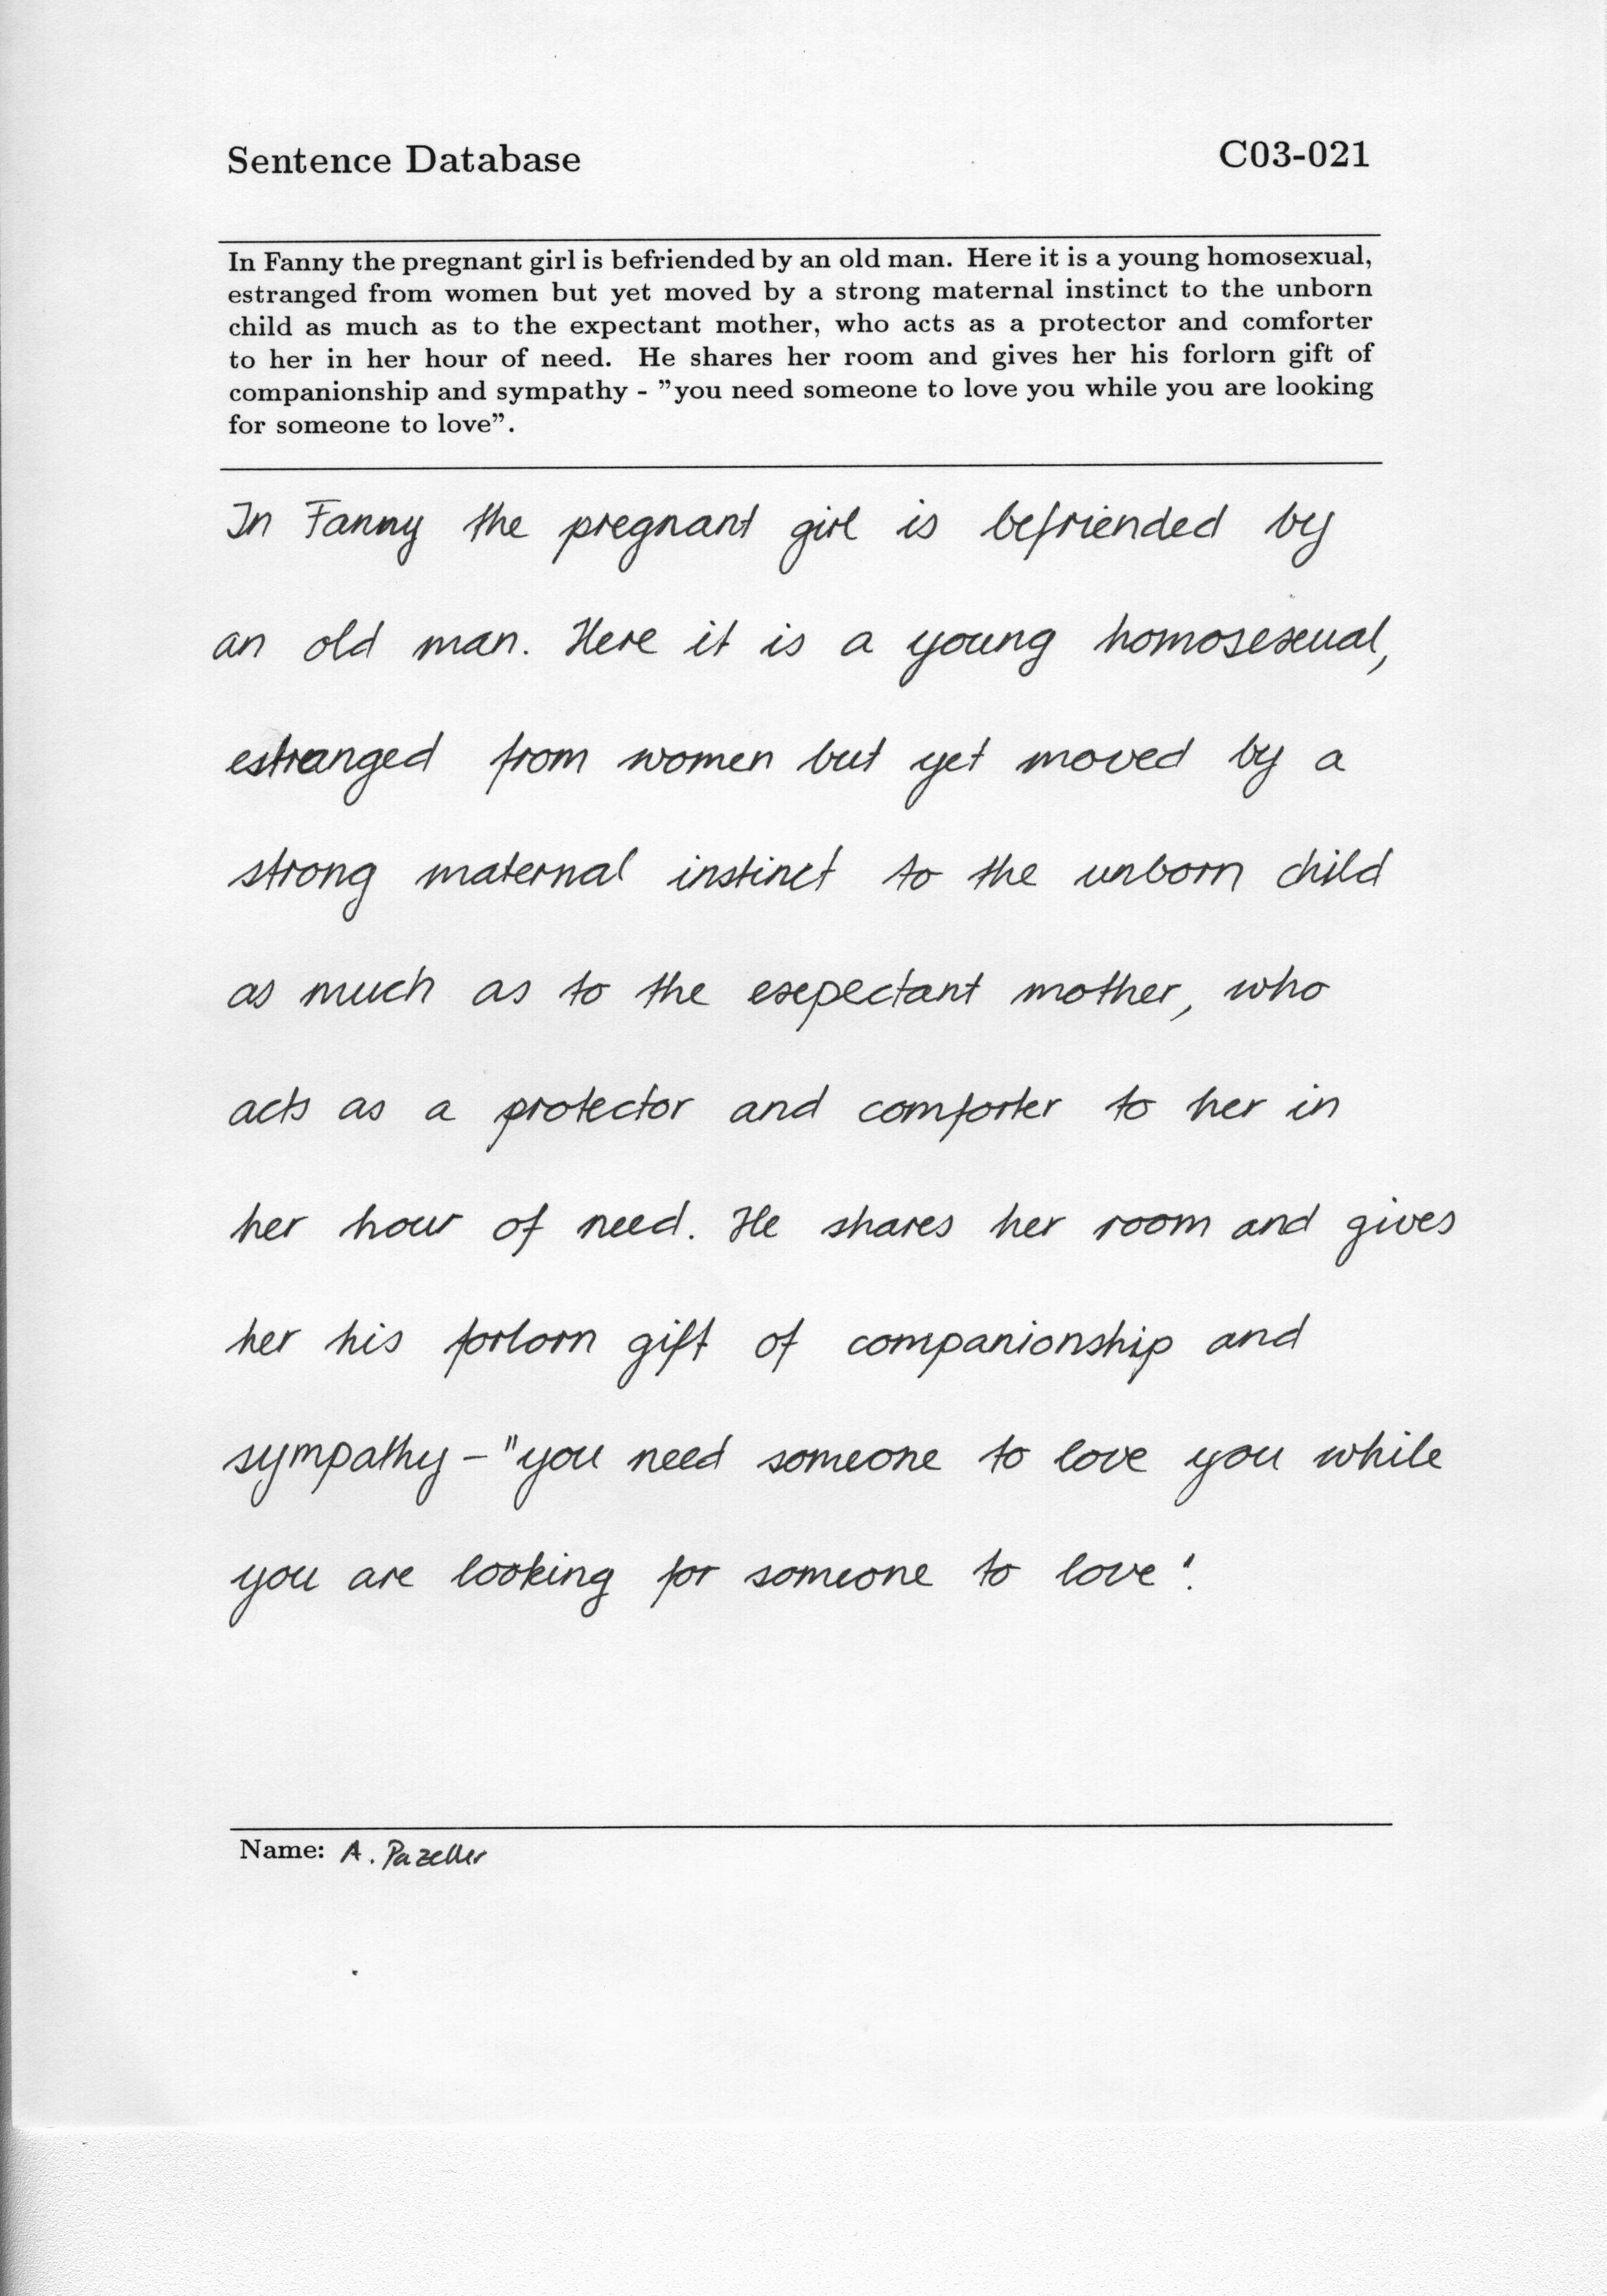 Sentence Database C03-021
In Fanny the pregnant girl is befriended by an old man. Here it is a young homosexual,
estranged from women but yet moved by a strong maternal instinct to the unborn
child as much as to the expectant mother, who acts as a protector and comforter
to her in her hour of need. He shares her room and gives her his forlorn gift of
companionship and sympathy - ”you need someone to love you while you are looking
for someone to love”.
In Fanny the pregnant girl is befriended by
an old man. Here it is a young homosexual,
estranged from women but yet moved by a
strong maternal instinct to the unborn child
as much as to the expectant mother, who
acts as a protector and comforter to her in
her hour of need. He shares her room and gives
her his forlorn gift of companionship and
sympathy - "you need someone to love you while
you are looking for someone to love".
Name: A. Pazeller